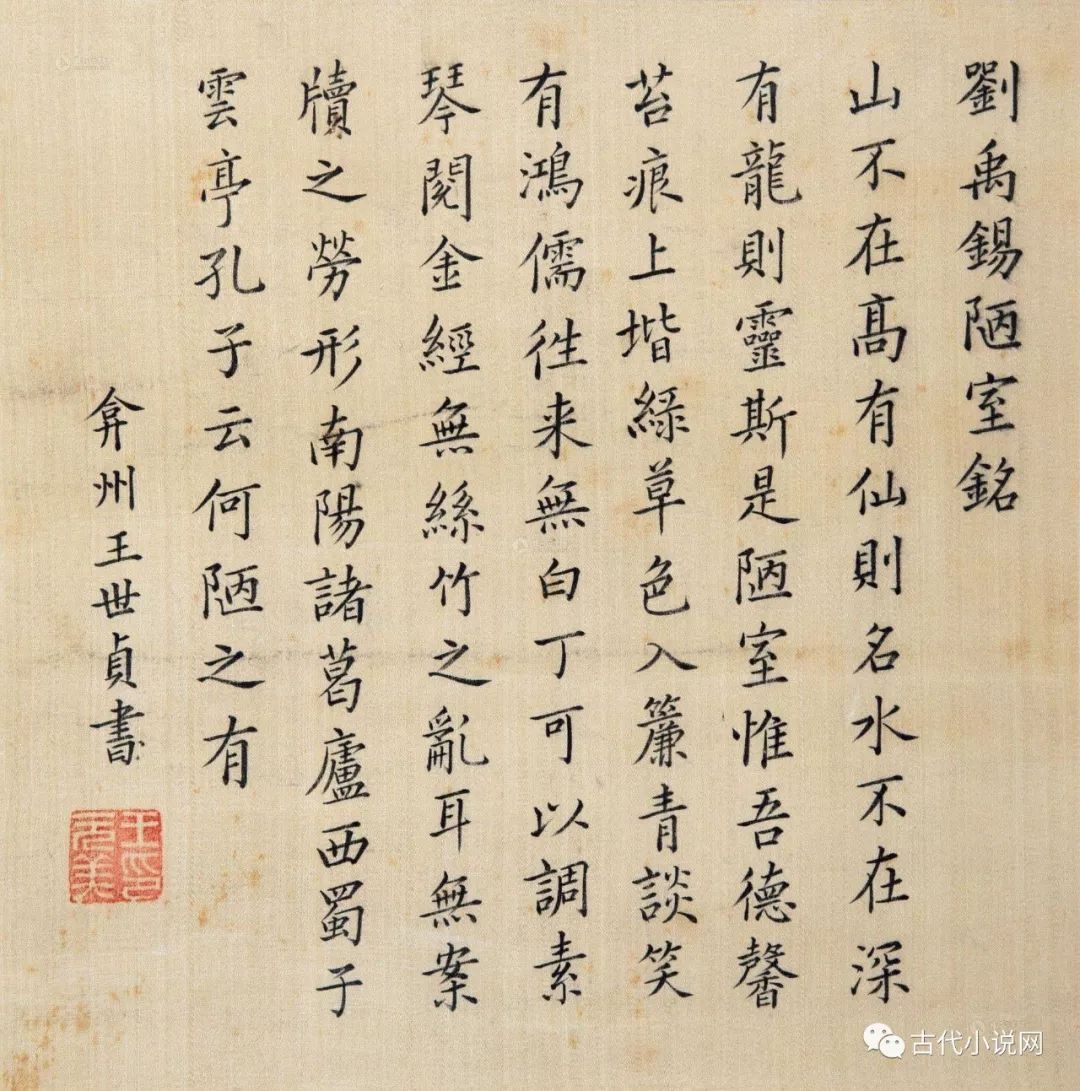 劉禹錫陋室銘
山不在髙有仙則名水不在深
有龍則靈斯是陋室惟吾德馨
苔痕上堦綠草色入簾青談笑
有鴻儒徃来無白丁可以調素
琴閱金經無絲竹之亂耳無案
牘之勞形南陽諸葛廬西蜀子
雲亭孔子云何陋之有
弇州王世貞書
王印元美
古代小说网